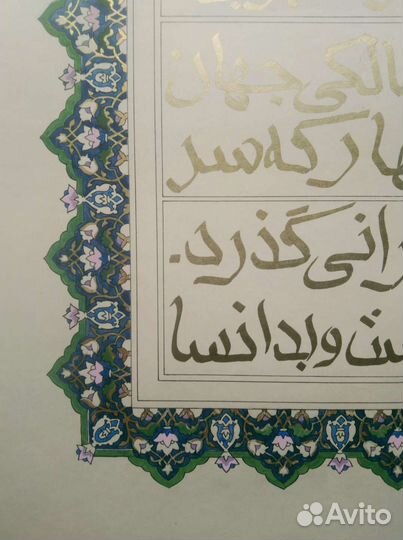 الکی جهان
هار که سد
رانی گذرد.
ث و بدانسا
Avito